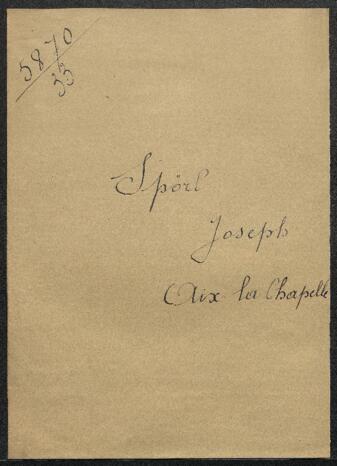 5870
33
Spörl
Joseph
Aix la Chapelle